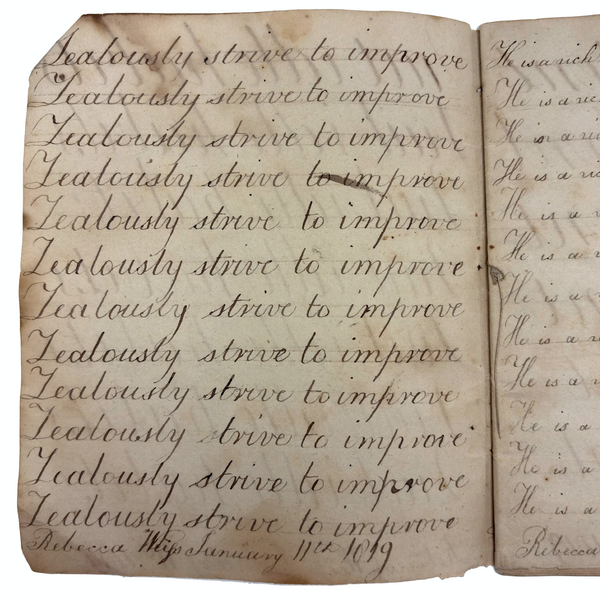 Zealously strive to improve
Zealously strive to improve
Zealously strive to improve
Zealously strive to improve
Zealously strive to improve
Zealously strive to improve
Zealously strive to improve
Zealously strive to improve
Zealously strive to improve
Zealously strive to improve
Zealously strive to improve
Zealously strive to improve
Rebecca January 11th 1819
He is a rich
He is a ric
He is a ric
He is a ric
He is a r
He is a r
He is a r
He is a r
He is a r
He is a
He is a
He is a
Rebecca